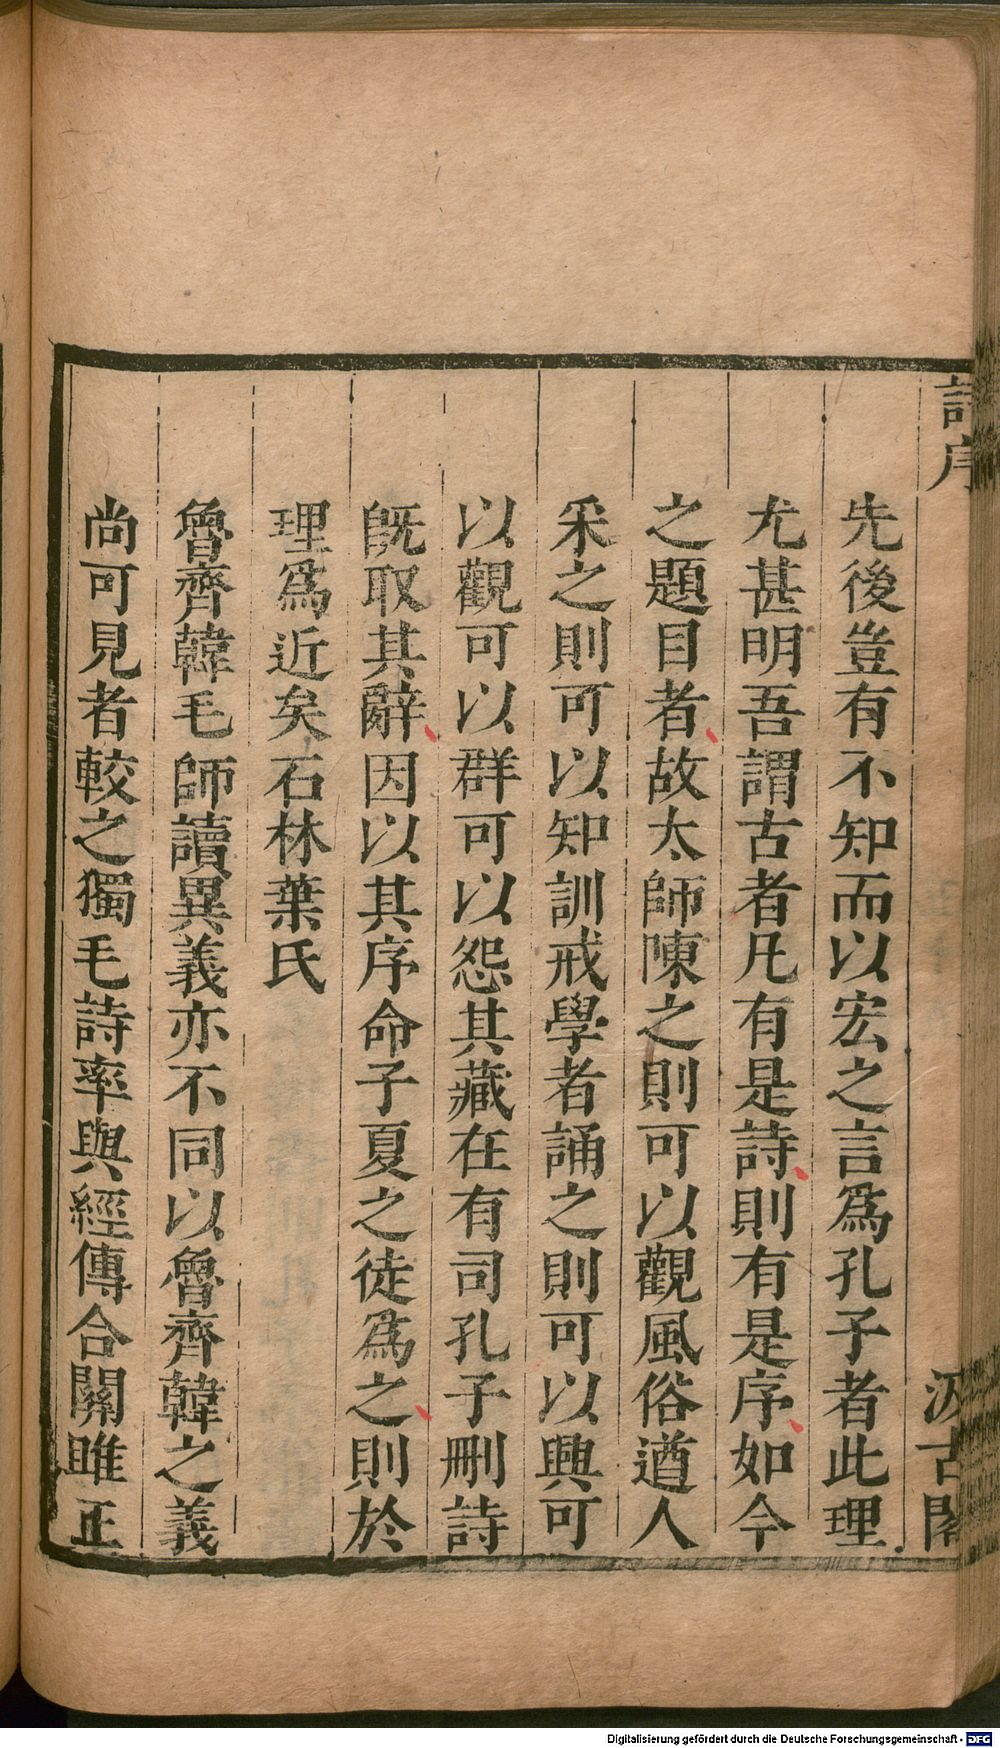 詩序
汲古閣
先後豈有不知而以宏之言爲孔子者此理
尤甚明吾謂古者凡有是詩則有是序如今
之題目者故太師陳之則可以觀風俗遒人
采之則可以知訓戒學者誦之則可以興可
以觀可以群可以怨其藏在有司孔子刪詩
旣取其辭因以其序命子夏之徒爲之則於
理爲近矣石林葉氏
魯齊韓毛師讀異義亦不同以魯齊韓之義
尚可見者較之獨毛詩率與經傳合關雎正
Digitalisierung gefördert durch die Deutsche Forschungsgemeinschaft - DFG